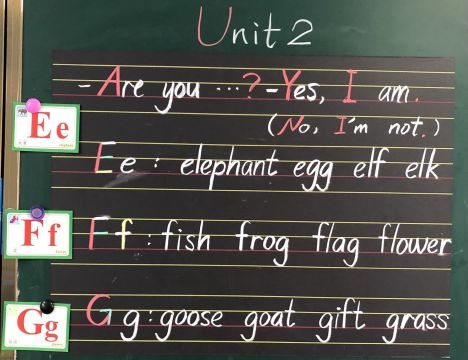 Unit 2
-Are you ...? -Yes, I am.
(No, I'm not.)
Ee
Ee: elephant egg elf elk
Ff
Ff: fish frog flag flower
Gg
Gg: goose goat gift grass